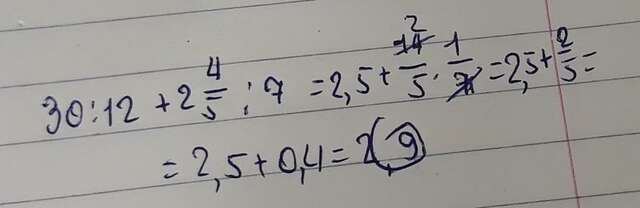 30:12 + 2 4/5 : 7 = 2,5 + 14/5 2 · 1/7 = 2,5 + 2/5 =
= 2,5 + 0,4 = 2,9